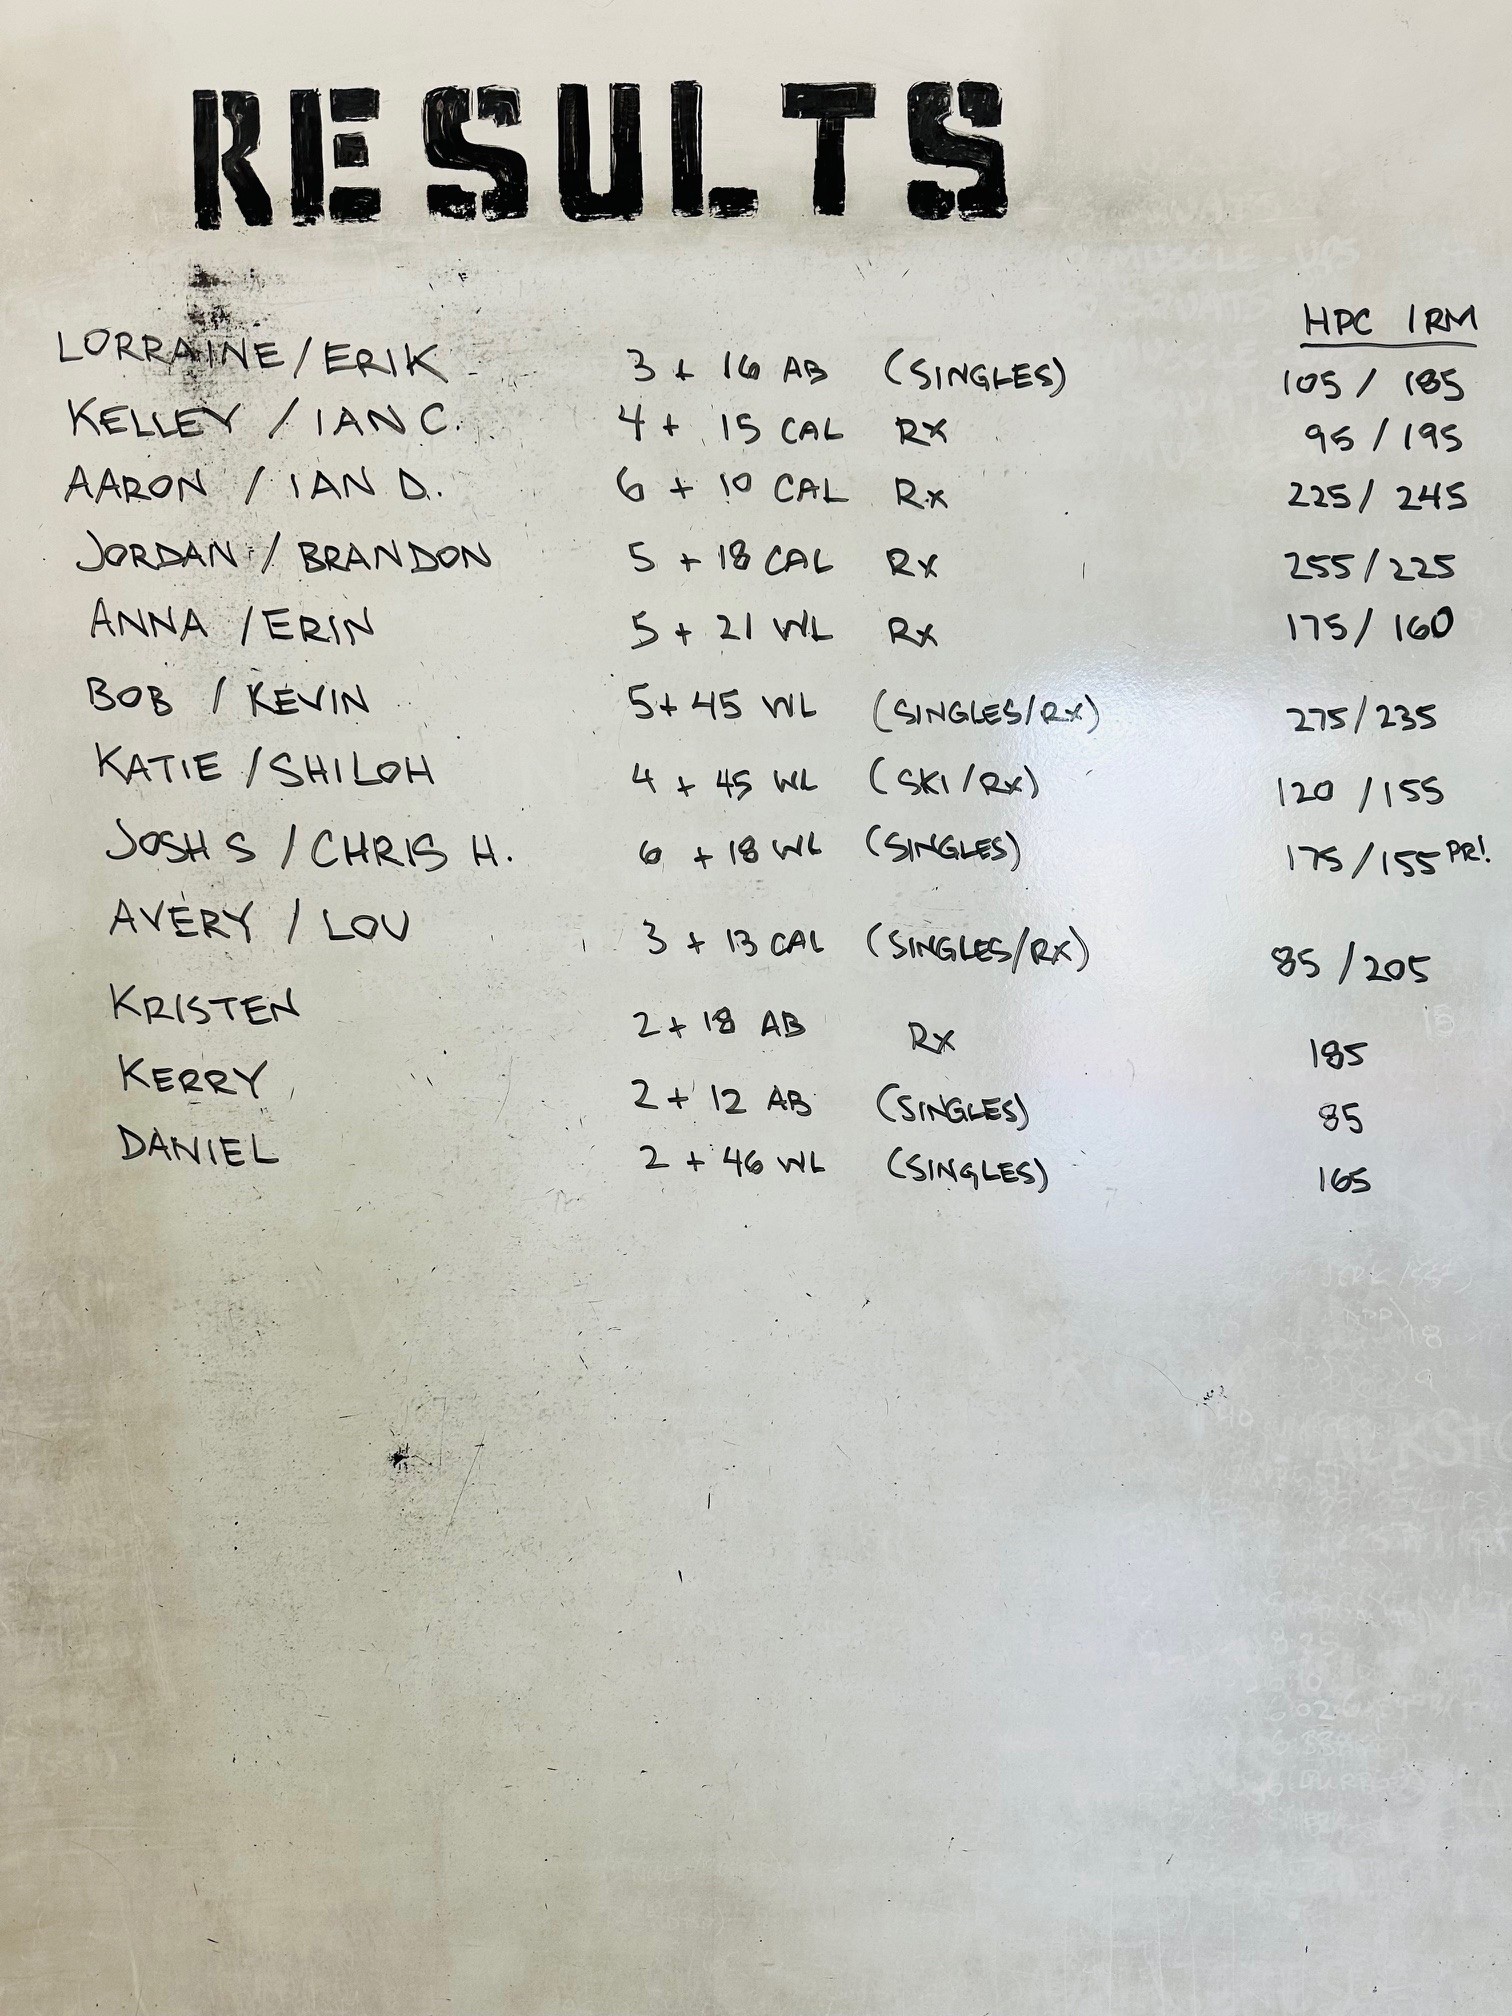 RESULTS
HPC 1RM
LORRAINE/ERIK 3 + 16 AB (SINGLES) 105/ 185
KELLEY / IAN C. 4 + 15 CAL RX 95/195
AARON / IAN D. 6 + 10 CAL RX 225/ 245
JORDAN / BRANDON 5 + 18 CAL RX 255/225
ANNA /ERIN 5 + 21 WL RX 175/ 160
BOB / KEVIN 5+ 45 WL (SINGLES/RX) 275/235
KATIE /SHILOH 4 + 45 WL (SKI/RX) 120 /155
JOSH S / CHRIS H. 6 + 18 WL (SINGLES) 175/155 PR!
AVERY / LOU 3 + 13 CAL (SINGLES/RX) 85 /205
KRISTEN 2+ 18 AB RX 185
KERRY 2+ 12 AB (SINGLES) 85
DANIEL 2 + 46 WL (SINGLES) 165